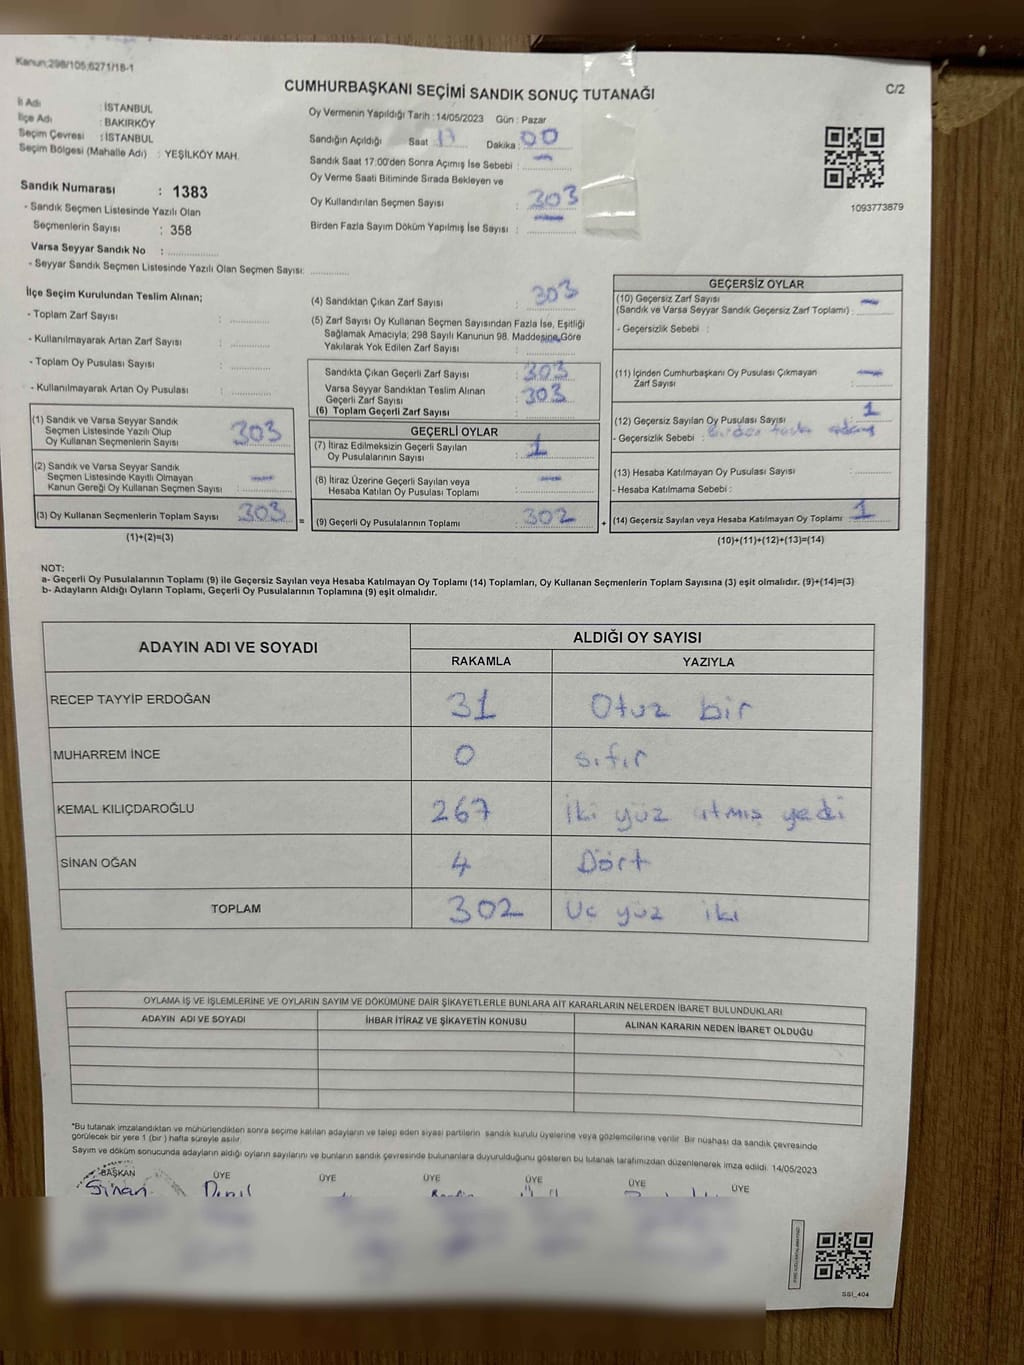 Kanun;298/105;6271/18-1
C/2
CUMHURBAŞKANI SEÇİMİ SANDIK SONUÇ TUTANAĞI
İl Adı : İSTANBUL
İlçe Adı : BAKIRKÖY
Seçim Çevresi : İSTANBUL
Seçim Bölgesi (Mahalle Adı) : YEŞİLKÖY MAH.
Sandık Numarası : 1383
- Sandık Seçmen Listesinde Yazılı Olan
Seçmenlerin Sayısı : 358
Varsa Seyyar Sandık No :
- Seyyar Sandık Seçmen Listesinde Yazılı Olan Seçmen Sayısı:
Oy Vermenin Yapıldığı Tarih :14/05/2023 Gün : Pazar
Sandığın Açıldığı Saat : 17 Dakika : 00
Sandık Saat 17:00'den Sonra Açımış İse Sebebi : -
Oy Verme Saati Bitiminde Sırada Bekleyen ve
Oy Kullandırılan Seçmen Sayısı : 303
Birden Fazla Sayım Döküm Yapılmış İse Sayısı : -
1093773879
İlçe Seçim Kurulundan Teslim Alınan;
- Toplam Zarf Sayısı :
- Kullanılmayarak Artan Zarf Sayısı :
- Toplam Oy Pusulası Sayısı :
- Kullanılmayarak Artan Oy Pusulası :
(1) Sandık ve Varsa Seyyar Sandık
Seçmen Listesinde Yazılı Olup
Oy Kullanan Seçmenlerin Sayısı : 303
(2) Sandık ve Varsa Seyyar Sandık
Seçmen Listesinde Kayıtlı Olmayan
Kanun Gereği Oy Kullanan Seçmen Sayısı : -
(3) Oy Kullanan Seçmenlerin Toplam Sayısı : 303
(1)+(2)=(3)
(4) Sandıktan Çıkan Zarf Sayısı : 303
(5) Zarf Sayısı Oy Kullanan Seçmen Sayısından Fazla İse, Eşitliği
Sağlamak Amacıyla; 298 Sayılı Kanunun 98. Maddesine Göre
Yakılarak Yok Edilen Zarf Sayısı : -
Sandıkta Çıkan Geçerli Zarf Sayısı : 303
Varsa Seyyar Sandıktan Teslim Alınan
Geçerli Zarf Sayısı : 303
(6) Toplam Geçerli Zarf Sayısı
GEÇERLİ OYLAR
(7) İtiraz Edilmeksizin Geçerli Sayılan
Oy Pusulalarının Sayısı : 1
(8) İtiraz Üzerine Geçerli Sayılan veya
Hesaba Katılan Oy Pusulası Toplamı : -
= (9) Geçerli Oy Pusulalarının Toplamı : 302
GEÇERSİZ OYLAR
(10) Geçersiz Zarf Sayısı
(Sandık ve Varsa Seyyar Sandık Geçersiz Zarf Toplamı) : -
- Geçersizlik Sebebi :
(11) İçinden Cumhurbaşkanı Oy Pusulası Çıkmayan
Zarf Sayısı : -
(12) Geçersiz Sayılan Oy Pusulası Sayısı : 1
- Geçersizlik Sebebi : Birden fazla
(13) Hesaba Katılmayan Oy Pusulası Sayısı :
- Hesaba Katılmama Sebebi :
+ (14) Geçersiz Sayılan veya Hesaba Katılmayan Oy Toplamı : 1
(10)+(11)+(12)+(13)=(14)
NOT:
a- Geçerli Oy Pusulalarının Toplamı (9) ile Geçersiz Sayılan veya Hesaba Katılmayan Oy Toplamı (14) Toplamları, Oy Kullanan Seçmenlerin Toplam Sayısına (3) eşit olmalıdır. (9)+(14)=(3)
b- Adayların Aldığı Oyların Toplamı, Geçerli Oy Pusulalarının Toplamına (9) eşit olmalıdır.
ADAYIN ADI VE SOYADI ALDIĞI OY SAYISI
RAKAMLA YAZIYLA
RECEP TAYYİP ERDOĞAN 31 Otuz bir
MUHARREM İNCE 0 sıfır
KEMAL KILIÇDAROĞLU 267 İki yüz atmış yedi
SİNAN OĞAN 4 Dört
TOPLAM 302 Uc yüz iki
OYLAMA İŞ VE İŞLEMLERİNE VE OYLARIN SAYIM VE DÖKÜMÜNE DAİR ŞİKAYETLERLE BUNLARA AİT KARARLARIN NELERDEN İBARET BULUNDUKLARI
ADAYIN ADI VE SOYADI İHBAR İTİRAZ VE ŞİKAYETİN KONUSU ALINAN KARARIN NEDEN İBARET OLDUĞU
*Bu tutanak imzalandıktan ve mühürlendikten sonra seçime katılan adayların ve talep eden siyasi partilerin sandık kurulu üyelerine veya gözlemcilerine verilir. Bir nüshası da sandık çevresinde
görülecek bir yere 1 (bir) hafta süreyle asılır.
Sayım ve döküm sonucunda adayların aldığı oyların sayılarını ve bunların sandık çevresinde bulunanlara duyurulduğunu gösteren bu tutanak tarafımızdan düzenlenerek imza edildi. 14/05/2023
BAŞKAN ÜYE ÜYE ÜYE ÜYE ÜYE ÜYE
Sinan
SSI_404